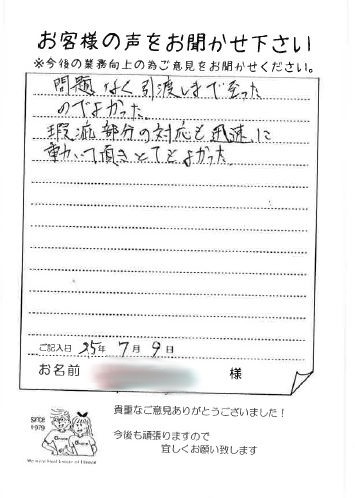 お客様の声をお聞かせ下さい
※今後の業務向上の為ご意見をお聞かせください。
問題なく引渡しまで至った
のでよかった。
瑕疵部分の対応も迅速に
動いて頂きとてもよかった。
ご記入日 25年 7月 9日
お名前 様
SINCE
1979
貴重なご意見ありがとうございました！
今後も頑張りますので
宜しくお願い致します